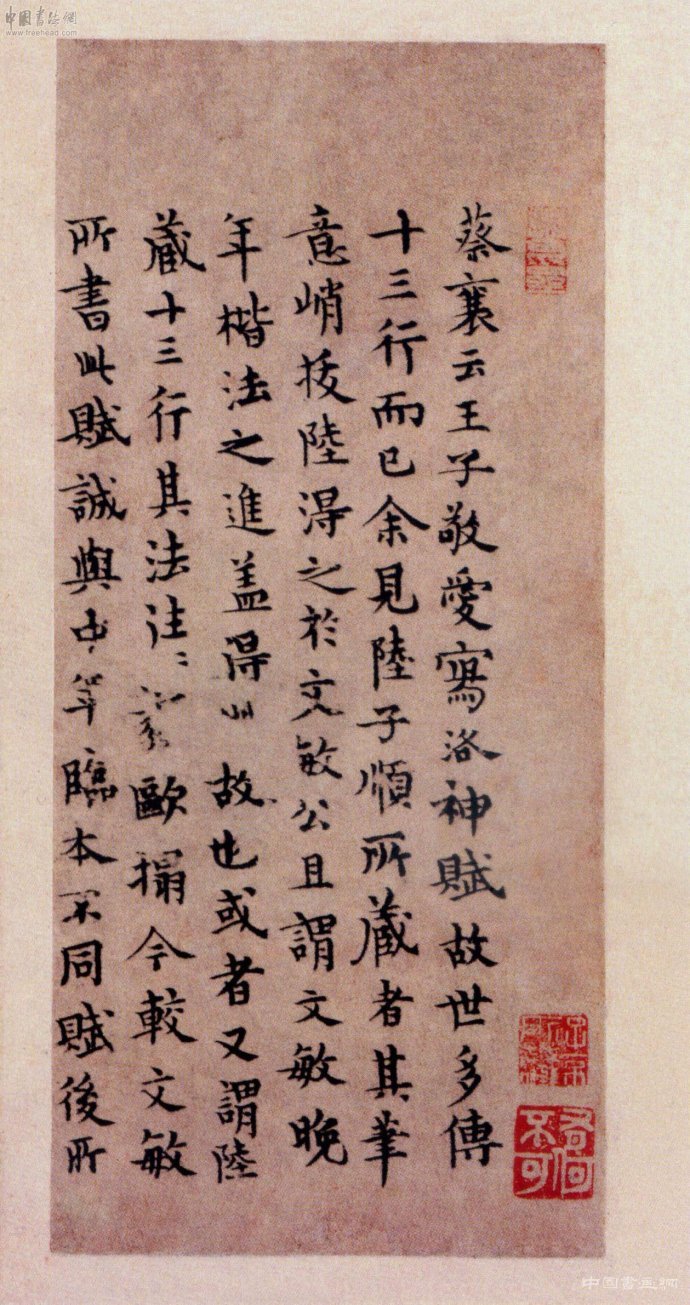 蔡襄云王子敬愛寫洛神賦故世多傳
十三行而已余見陸子順所藏者其筆
意峭拔陸淂之於文敏公且謂文敏晚
年楷法之進盖淂此故也或者又謂陸
藏十三行其法往〻歐搨今較文敏
所書此賦誠與中年臨本不同賦後所
有何不可
中國書法網
www.freehead.com
中國書画網